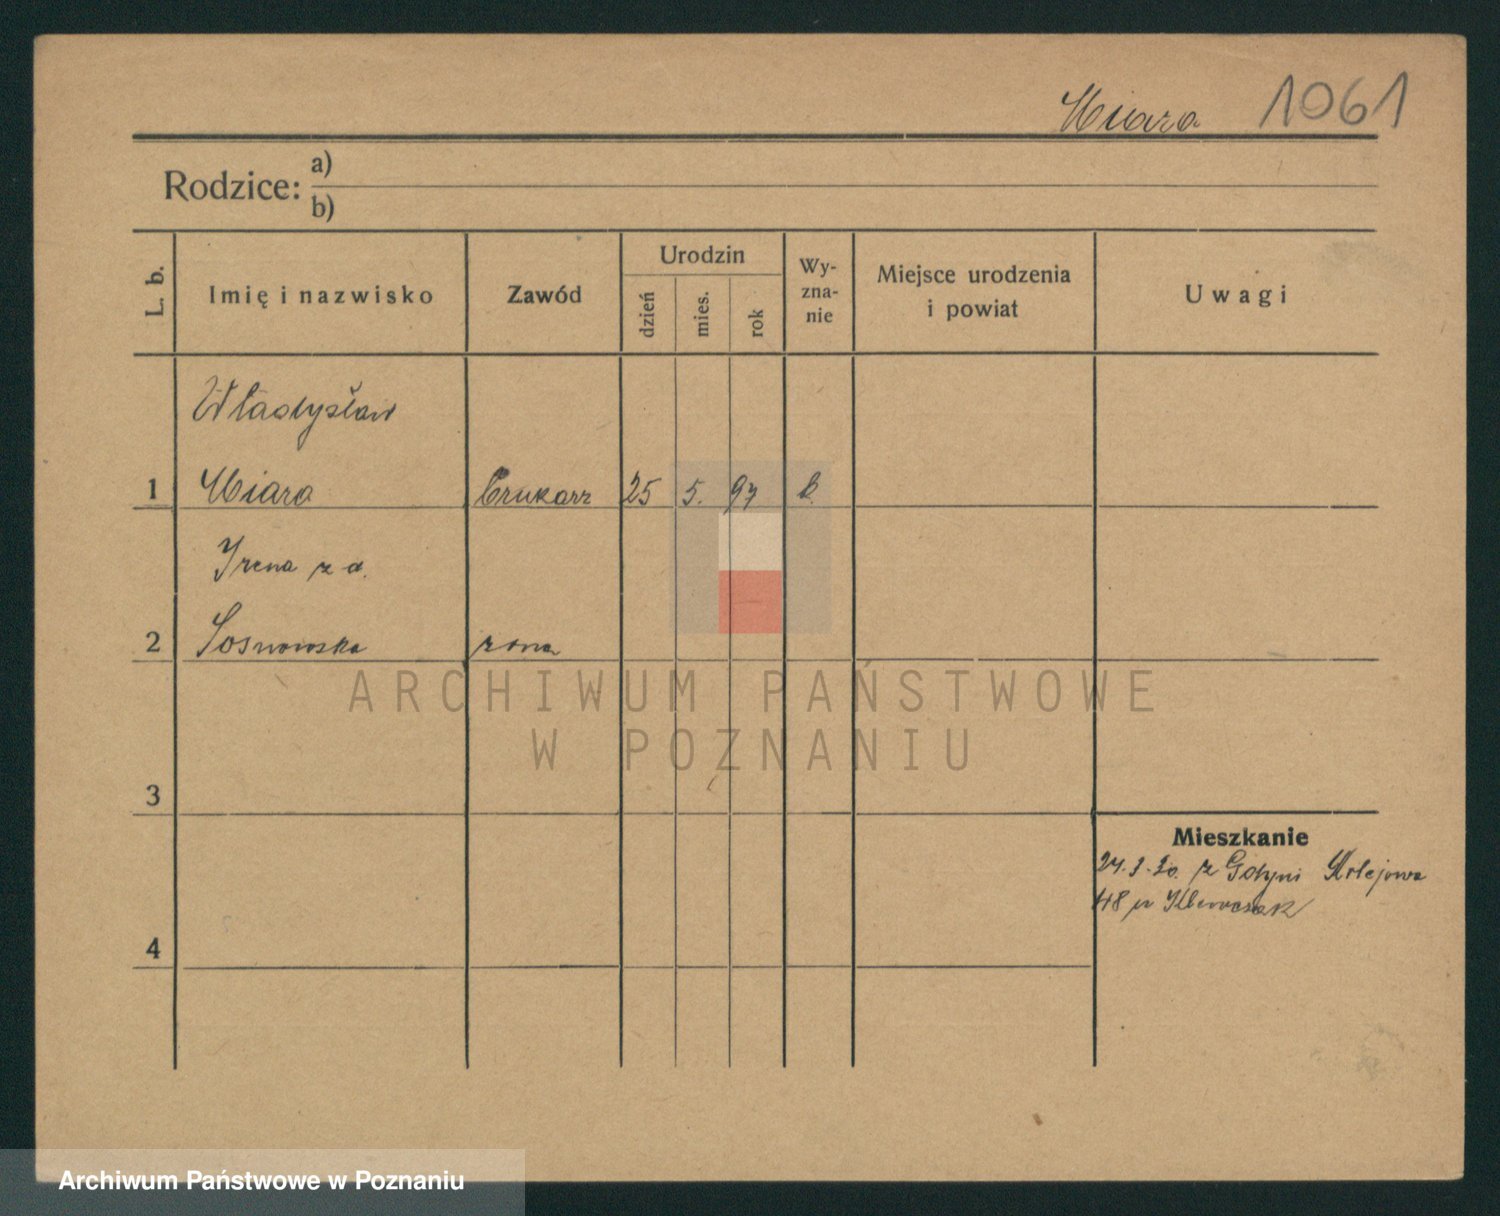 Miara 1061
Rodzice: a)
b)
L. b.
Imię i nazwisko
Zawód
Urodzin
dzień
mies.
rok
Wy-
zna-
nie
Miejsce urodzenia
i powiat
Uwagi
Władysław
1 Miara 25 5. 97
Irena z d.
2 Sosnowska zona
3
Mieszkanie
z Gdyni Kolejowa
48
4
ARCHIWUM PAŃSTWOWE
W POZNANIU
Archiwum Państwowe w Poznaniu